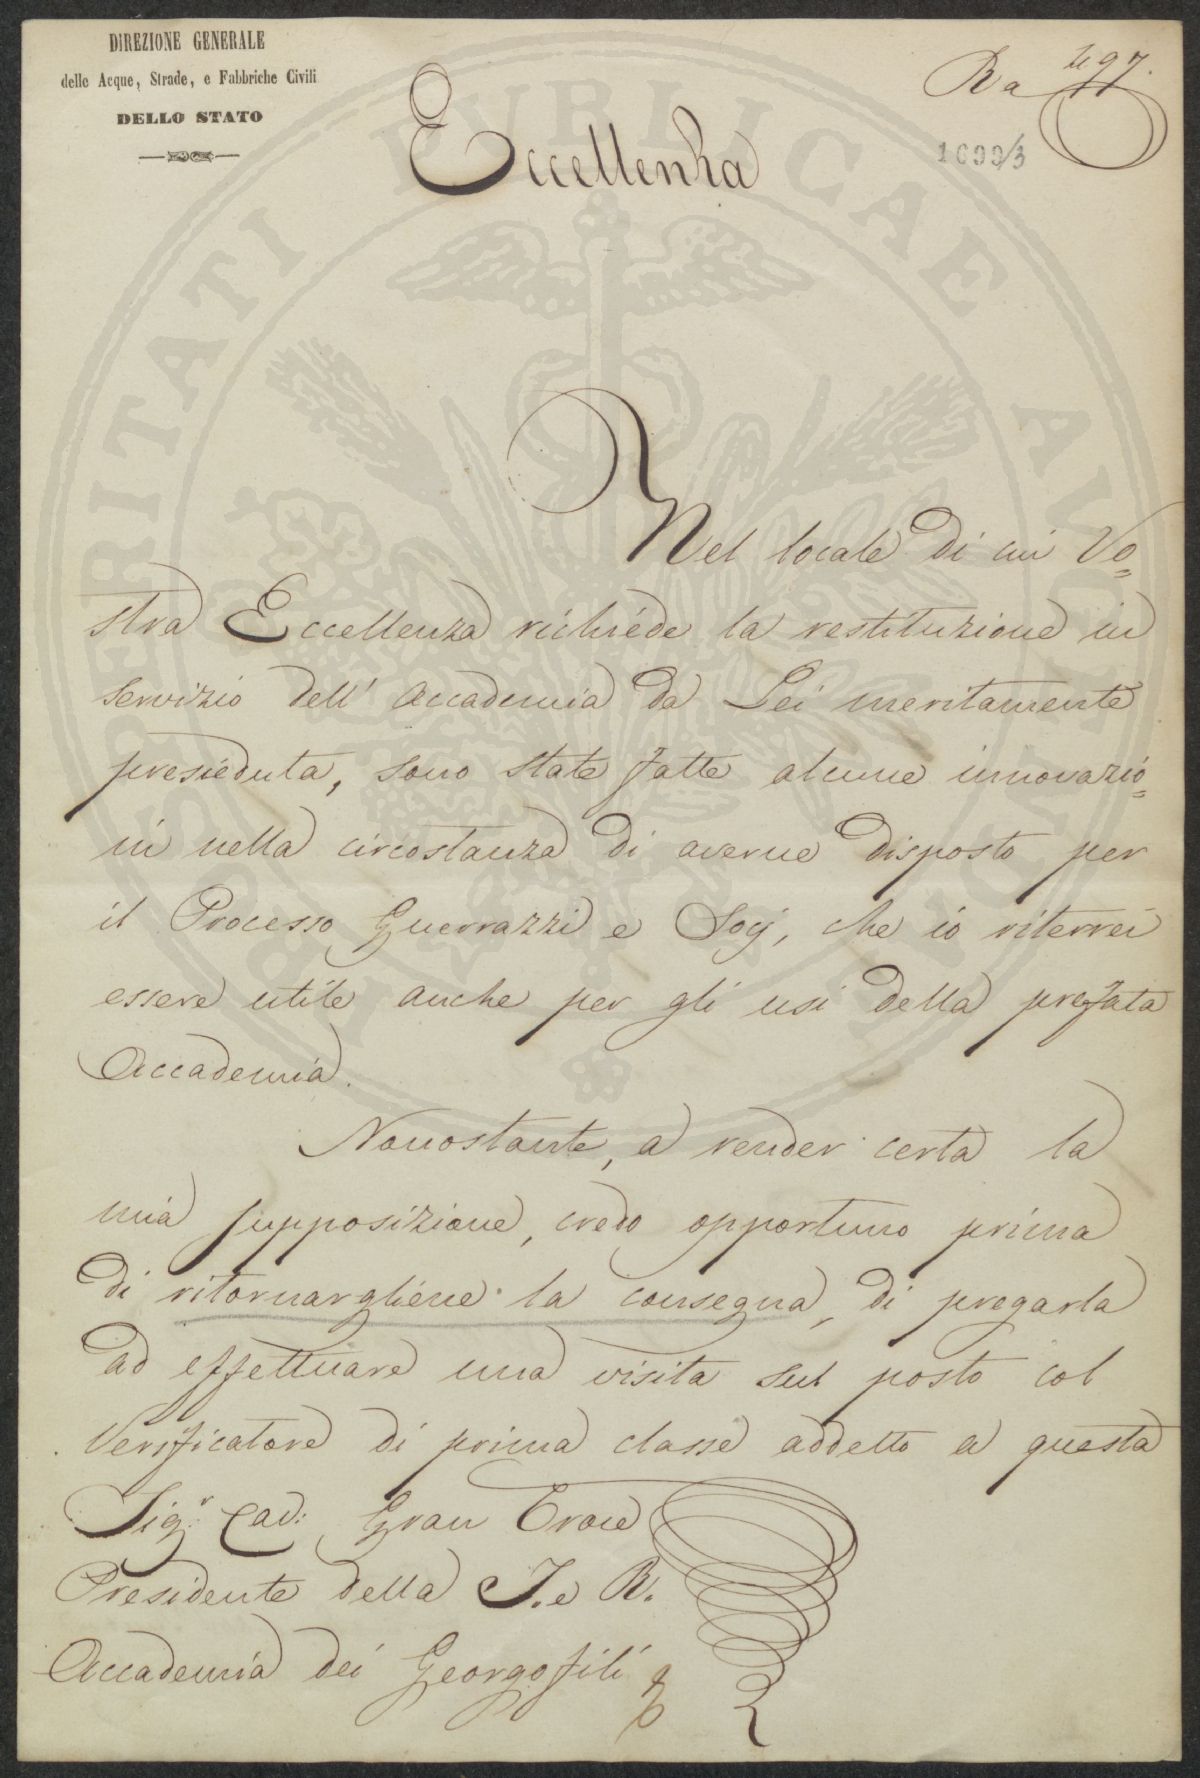 DIREZIONE GENERALE
delle Acque, Strade, e Fabbriche Civili
DELLO STATO
Ra 497.
1099/3
Eccellenza
Nel locale di cui Vo=
stra Eccellenza richiede la restituzione in
servizio dell' Accademia da Lei meritamente
presieduta, sono state fatte alcune innovazio=
ni nella circostanza di averne disposto per
il Processo Guerrazzi e Socj, che io riterrei
essere utile anche per gli usi della prefata
Accademia.
Nonostante, a render certa la
mia supposizione, credo opportuno prima
di ritornargliene la consegna, di pregarla
ad effettuare una visita sul posto col
Verificatore di prima classe addetto a questa
Sigr. Cav: Gran Croce
Presidente della I. e R.
Accademia dei Georgofili
PROSPERITATI PUBLICAE AUGENDAE